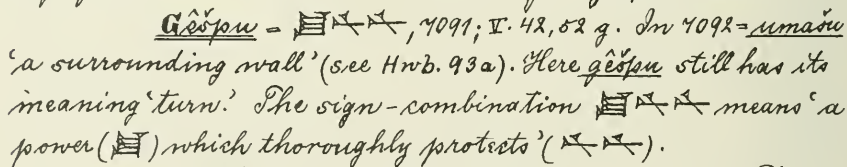 Gêšpu = 𒋗𒉽𒉽, 7091; V. 42, 52 g. In 7092 = umašu
‘a surrounding wall’ (see Hwb. 93a). Here gêšpu still has its
meaning ‘turn.’ The sign-combination 𒋗𒉽𒉽 means ‘a
power (𒋗) which thoroughly protects’ (𒉽𒉽).